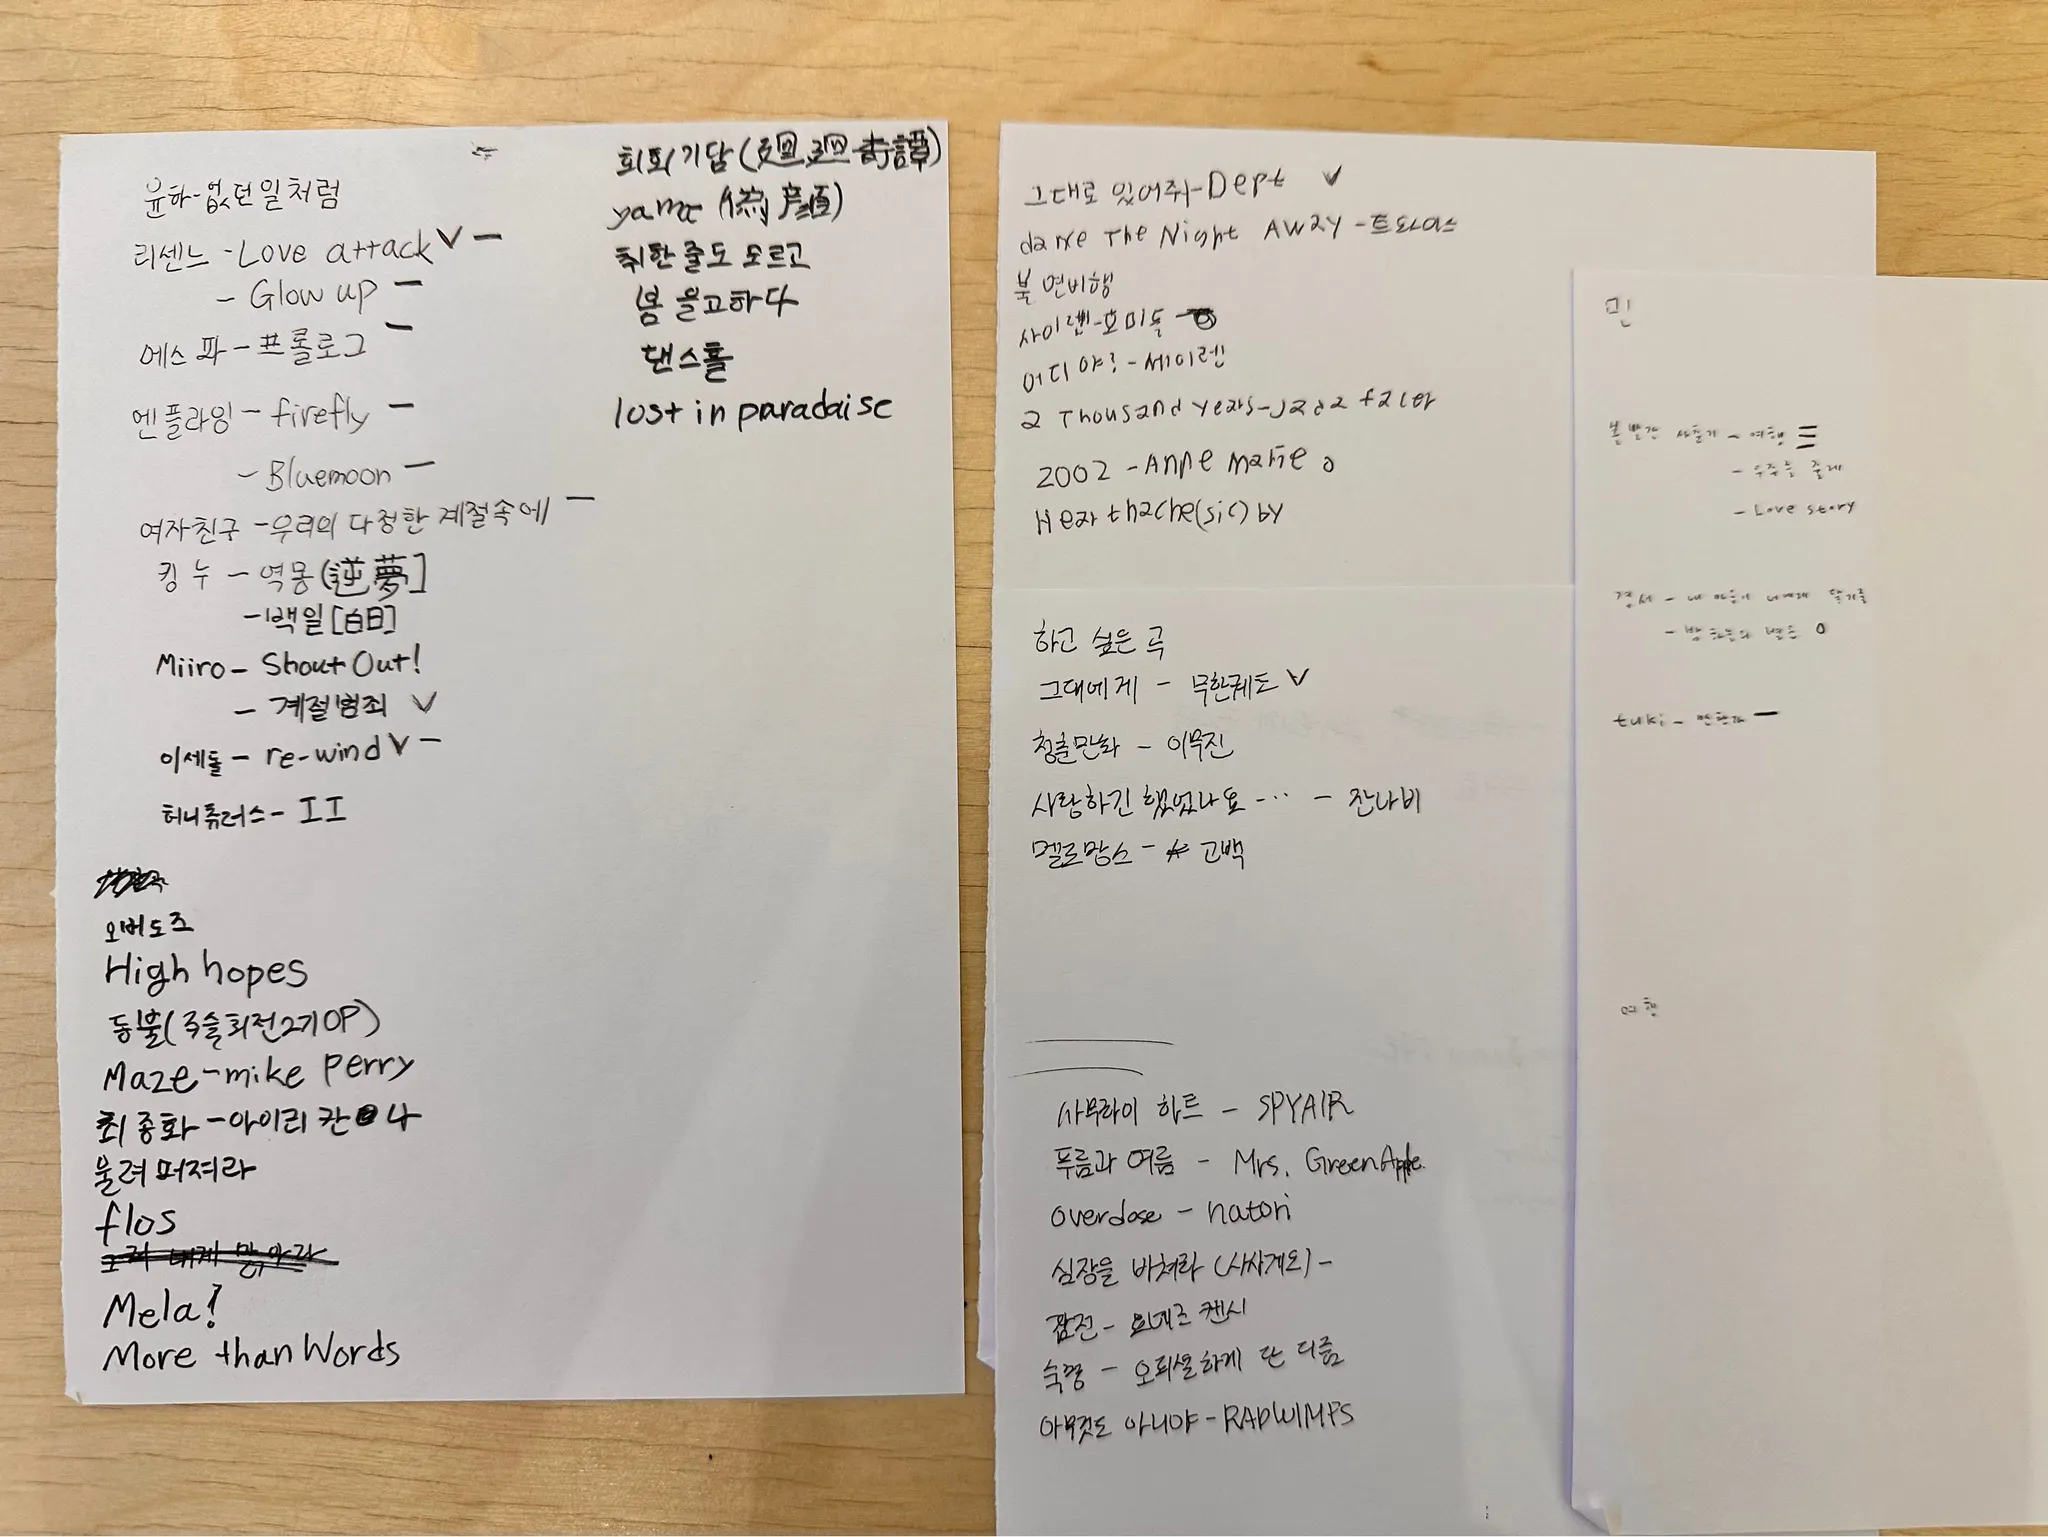 윤하-없던일처럼
리센느 - Love attack V —
- Glow up —
에스파 - 프롤로그 —
엔플라잉 - firefly —
- Bluemoon —
여자친구 - 우리의 다정한 계절속에 —
킹누 - 역몽 (逆夢]
- 백일 [白日]
Miiro - Shout Out!
- 계절범죄 V
이세돌 - re-wind V —
허니츄러스 - II
오버도즈
High hopes
동불(주술회전2기OP)
Maze-mike perry
최종화 - 아이리 칸나
울려퍼져라
flos
Mela!
More than Words
회회기담(廻廻奇譚)
yama (偽顔)
취한줄도 모르고
봄 을고하다
댄스홀
lost in paradaise
그대로 있어줘-Dept V
dance The Night AWay - 트와이스
불면비행
사이렌-호미들
어디야? - 세이렌
2 Thousand years-Jada facer
2002 - Anne Marie o
Hear thache(sic) by
하고 싶은 곡
그대에게 - 무한궤도 V
청춘만화 - 이무진
사랑하긴 했었나요 -... - 잔나비
멜로망스 - 고백
사무라이 하트 - SPYAIR
푸름과 여름 - Mrs. GreenApple.
overdose - natori
심장을 바쳐라 (사사게요) -
감전 - 요네즈 켄시
숙명 - 오피셜하게 단 디즘
아무것도 아니야 - RADWIMPS
민
볼빨간 사춘기 - 여행
- 우주를 줄게
- Love story
경서 - 내 마음이 너에게 닿기를
- 밤하늘의 별을 o
tuki - 만찬가 —
여행